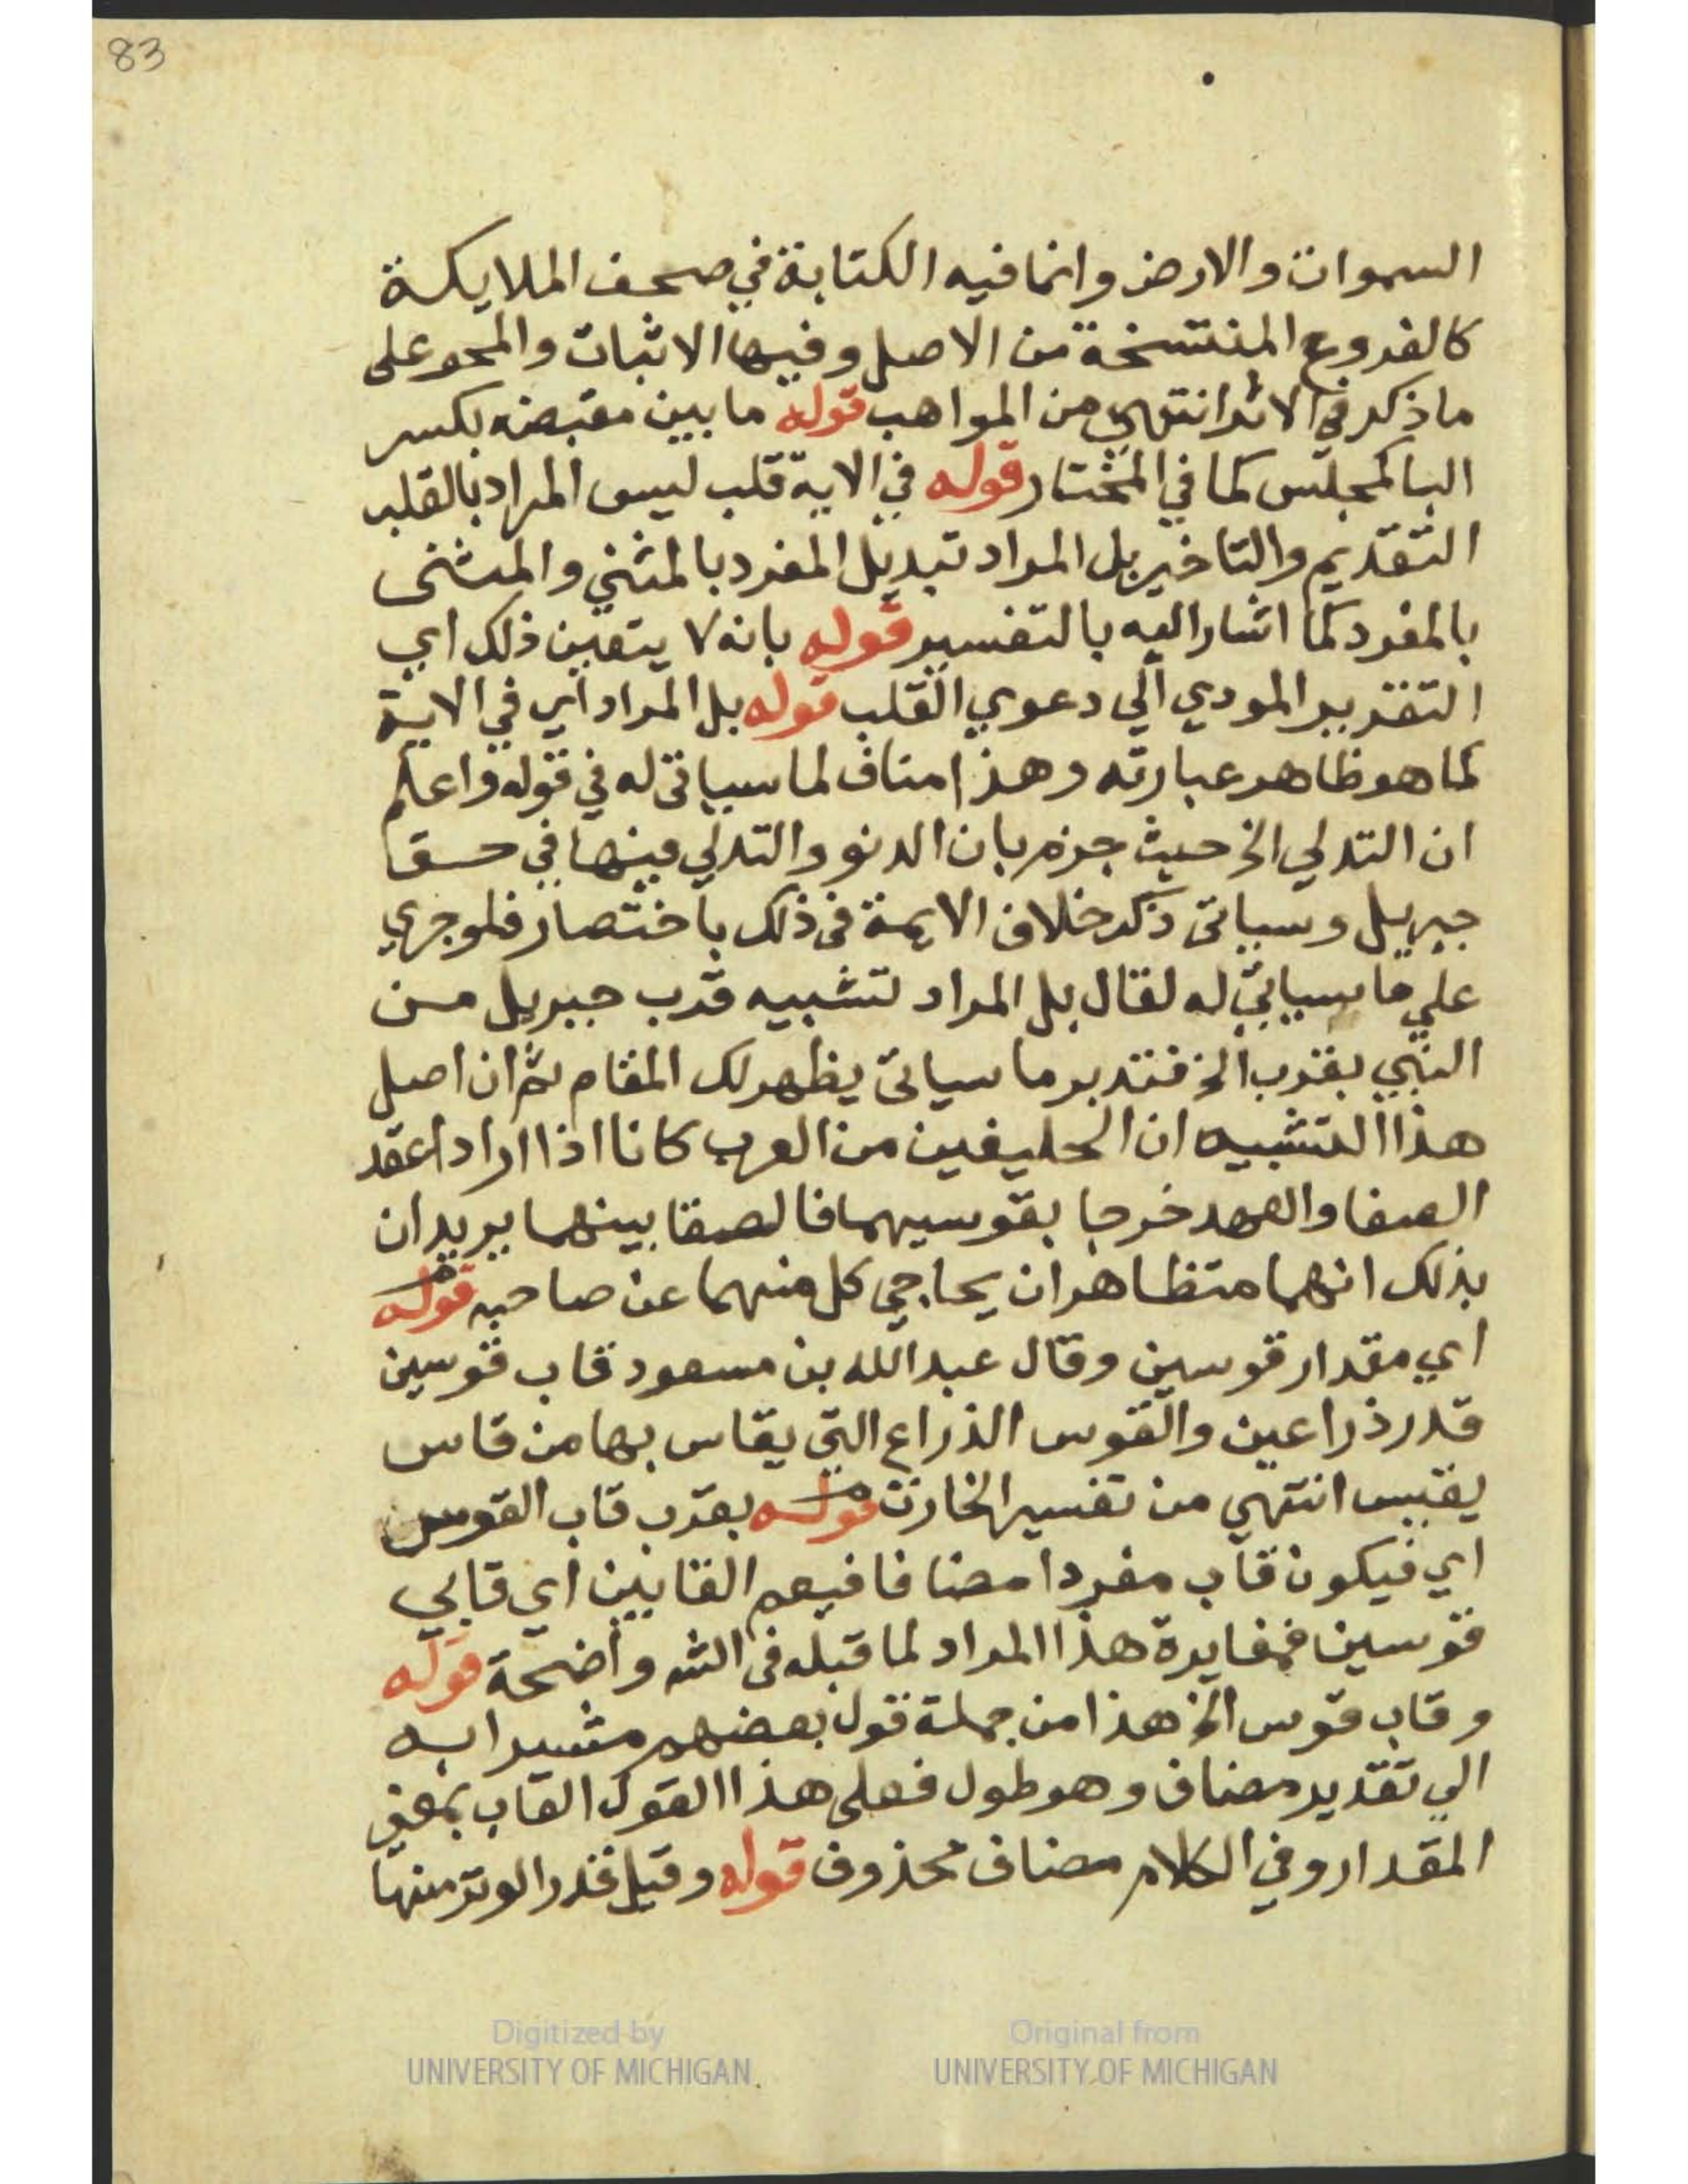 83
السموات والارض وانما فيه الكتابة في صحف الملايكة
كالفروع المنتسخة من الاصل وفيها الاثبات والمحو على
ما ذكر في الاثر انتهي من المواهب قوله ما بين مقبضه بكسر
البا كمجلس كما في المختار قوله في الاية قلب ليس المراد بالقلب
التقديم والتاخير بل المراد تبديل المفرد بالمثني والمثنى
بالمفرد كما اشار اليه بالتفسير قوله بانه لا يتعين ذلك اي
التقرير المودي الي دعوي القلب قوله بل المراد اي في الاية
كما هو ظاهر عبارته وهذا مناف لما سياتى له في قوله واعلم
ان التدلي الخ حيث جزم بان الدنو والتدلي فيها في حق
جبريل وسياتى ذكر خلاف الايمة فى ذلك باختصار فلو جري
علي ما سياتي له لقال بل المراد لتشبيه قرب جبريل من
النبي بقرب الخ فتدبر ما سياتى يظهر لك المقام ثم ان اصل
هذا التشبيه ان الحليفين من العرب كانا اذا ارادا عقد
الصفا والعهد خرجا بقوسيهما فالصقا بينهما يريدان
بذلك انهما متظاهران يحاجي كل منهما عن صاحبه قوله
اي مقدار قوسين وقال عبد الله بن مسعود قاب قوسين
قدر ذراعين والقوس الذراع التي يقاس بها من قاس
يقيس انتهي من تفسير الخازن قوله بقرب قاب القوس
اي فيكون قاب مفردا مضافا فيعم القابين اي قابي
قوسين فمغايرة هذا المراد لما قبله فى الشه واضحة قوله
وقاب قوس الخ هذا من جملة قول بعضهم مشيرا به
الي تقدير مضاف وهو طول فعلى هذا القول القاب بمعني
المقدار وفي الكلام مضاف محذوف قوله وقيل قدر الوتر منها
Digitized by
UNIVERSITY OF MICHIGAN
Original from
UNIVERSITY OF MICHIGAN